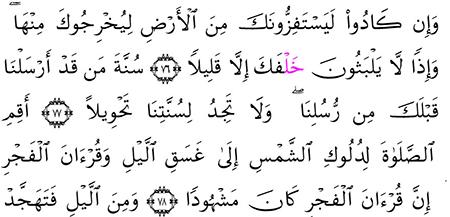 وَإِن كَادُوا۟ لَيَسْتَفِزُّونَكَ مِنَ ٱلْأَرْضِ لِيُخْرِجُوكَ مِنْهَا ۖ
وَإِذًا لَّا يَلْبَثُونَ خَلْفَكَ إِلَّا قَلِيلًا ﴿٧٦﴾ سُنَّةَ مَن قَدْ أَرْسَلْنَا
قَبْلَكَ مِن رُّسُلِنَا ۖ وَلَا تَجِدُ لِسُنَّتِنَا تَحْوِيلًا ﴿٧٧﴾ أَقِمِ
ٱلصَّلَوٰةَ لِدُلُوكِ ٱلشَّمْسِ إِلَىٰ غَسَقِ ٱلَّيْلِ وَقُرْءَانَ ٱلْفَجْرِ
إِنَّ قُرْءَانَ ٱلْفَجْرِ كَانَ مَشْهُودًا ﴿٧٨﴾ وَمِنَ ٱلَّيْلِ فَتَهَجَّدْ